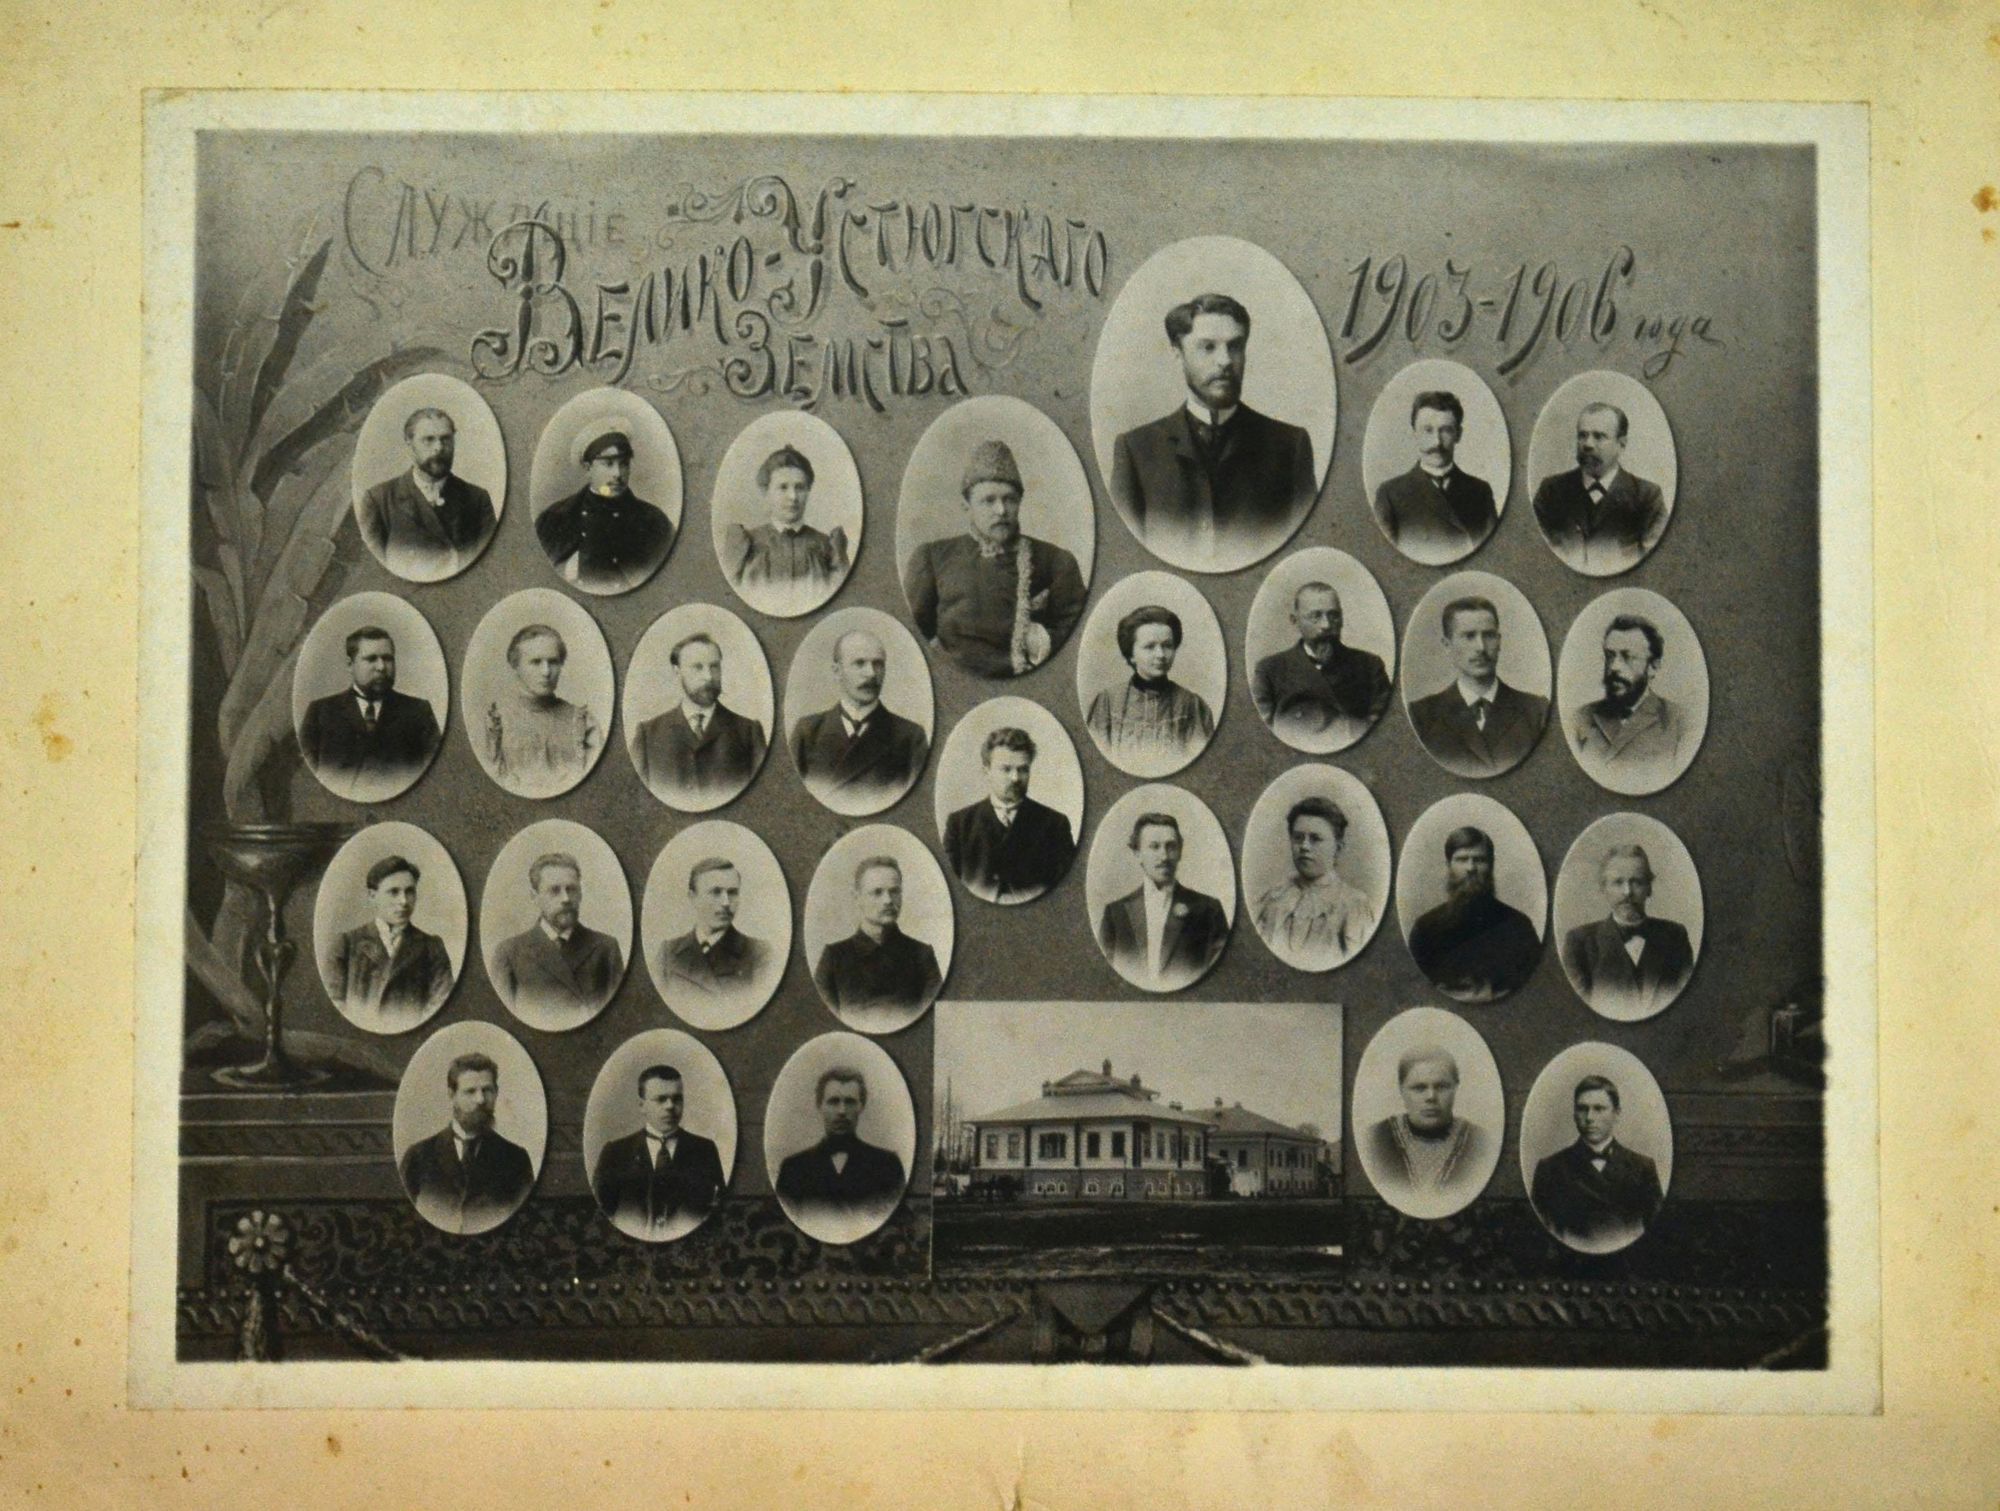 Служащіе
Велико-Устюгскаго
Земства
1903-1906 года